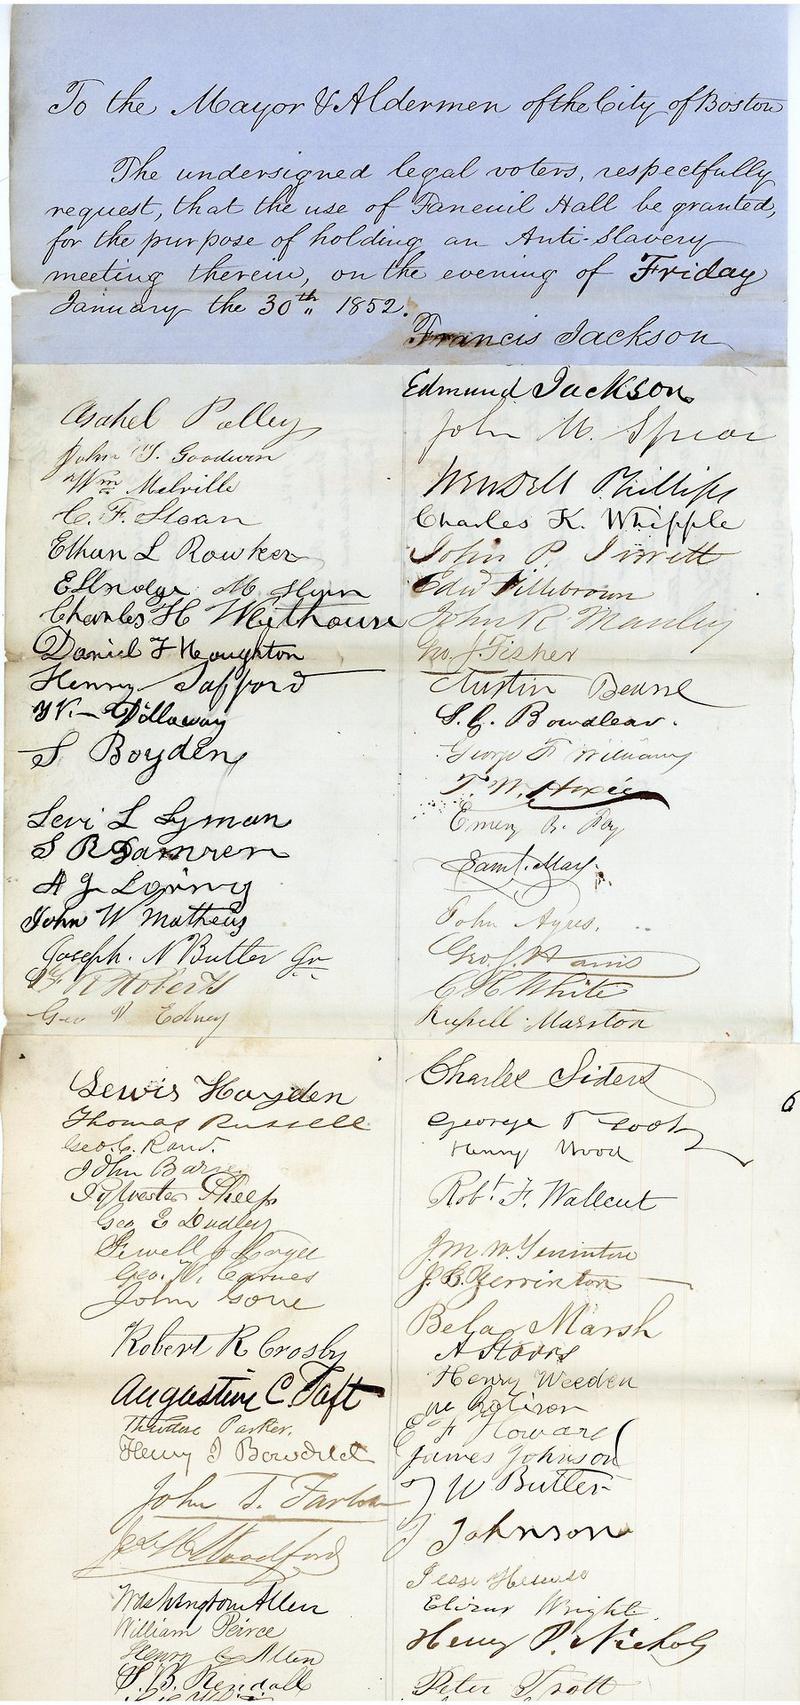 To the Mayor & Aldermen of the City of Boston
The undersigned legal voters, respectfully
request, that the use of Faneuil Hall be granted,
for the purpose of holding an Anti-Slavery
meeting therein, on the evening of Friday
January the 30th 1852.
Francis Jackson
Edmund Jackson
John M. Spear
Wendell Phillips
Charles K. Whipple
John P. Jewett
Edwd Fillebrown
John R Manley
Geo. J Fisher
Austin Bearse
S. G. Bowdlear.
George F Williams
T. W.
Emery B. Fay
Saml. May.
John Ayres.
Geo. J. Harris
C H White
Russell Marston
Asahel
John Goodwin
Wm Melville
C. F. Sloan
Ethan L
M
Charles H
Daniel F Houghton
Henry Safford
W. Dillaway
S Boyden
Levi L Lyman
S R
A J
John W Mathews
Joseph. N Butler Jr
K Roberts
Geo Edney
Lewis Hayden
Thomas Russell
Geo. C. Rand.
John
Sylvester Phelps
Geo E Dudley
Sewell J
Geo. W. Carnes
John Gove
Robert R Crosby
Augustine C. Taft
Theodore Parker.
Henry I Bowditch
John S. Farlow
Woodford
Washington Allen
William Peirce
Henry C Allen
S. B. Kendall
Charles Siders
George T Cook
Henry Wood
Robt. F. Wallcut
J. M. W. Yerrinton
J. B. Yerrinton
Bela Marsh
A
Henry Weeden
E F Howard
James Johnson
J W Butler
J Johnson
Jesse
Elizur Wright
Henry P. Nichols
Peter Trott
6